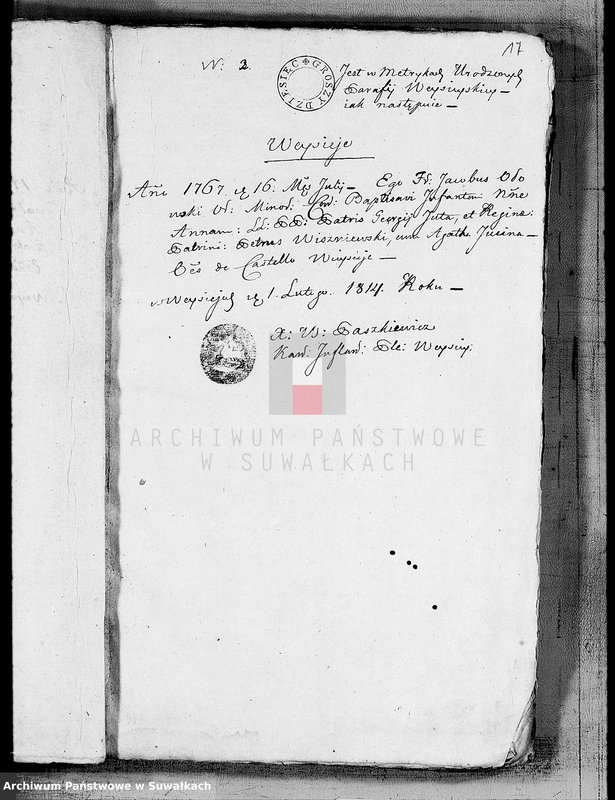 17
N. 2.
DZIESIĘC GROSZY
Jest w Metrykach Urodzonych
Parafij Weysieyskiey –
iak następuie –
Weysieje
Año 1767. 16: Julij – Ego Fr: Jacobus
Ord: Minor: Con: Baptisavi Infantem Nñe
Annam: LL: PP: Patris Georgij Juta, et Regina:
Patrini: Petrus Wiszniewski, cum Agatha Jusina –
de Castello Weysieje –
w Weysiejach 1. Lutego. 1814. Roku –
X: W: Paszkiewicz
Kan: Inflan: Ple: Weysiey:
ARCHIWUM PAŃSTWOWE
W SUWAŁKACH
Archiwum Państwowe w Suwałkach